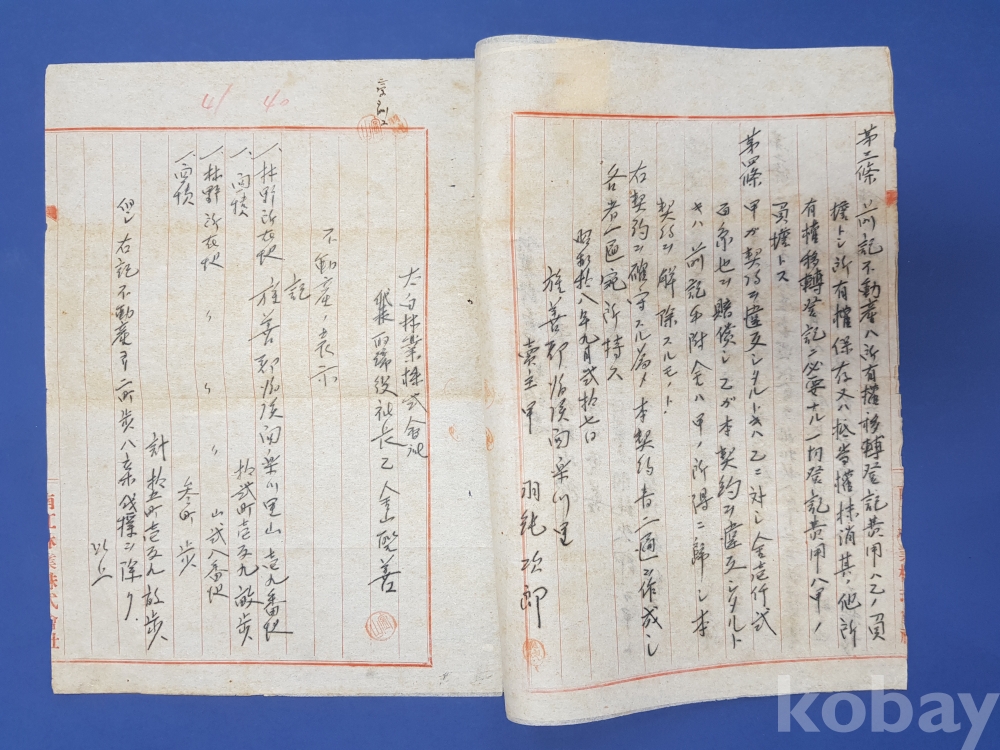 第三條 前記不動産ハ所有權移轉登記費用ハ乙ノ負
擔トシ所有權保存又ハ抵当權抹消其ノ他所
有權移轉登記ニ必要ナル一切登記費用ハ甲ノ
負擔トス
第四條 甲ガ契約ニ違反シタルトキハ乙ニ対シ金壱仟弐
百糸也ヲ賠償シ乙ガ本契約ニ違反シタルト
キハ前記手附金ハ甲ノ所得ニ歸シ本
契約ヲ解除スルモノト
右契約ヲ確守スル為メ本契約書二通ヲ作成シ
各者一通宛所持ス
昭和拾八年九月弐拾七日
旌善郡臨渓面
賣主甲 羽純次郎
太白林業株式会社
取締役社長乙 金山聖善
不動産ノ表示
記
一、林野所在地 旌善郡臨渓面 里山壱九番地
一、面積 拾弐町壱反九畝歩
一、林野所在地 〃 〃 〃 山弐八番地
一、面積 参町歩
計 拾五町壱反九畝歩
但シ右記不動産ヨリ二町歩ハ 伐採ニ除ク
以上
40
41
林業株式會社
kobay